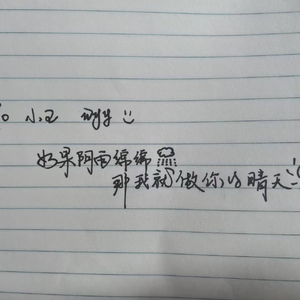 小王
如果阴雨绵绵
那我就做你的晴天